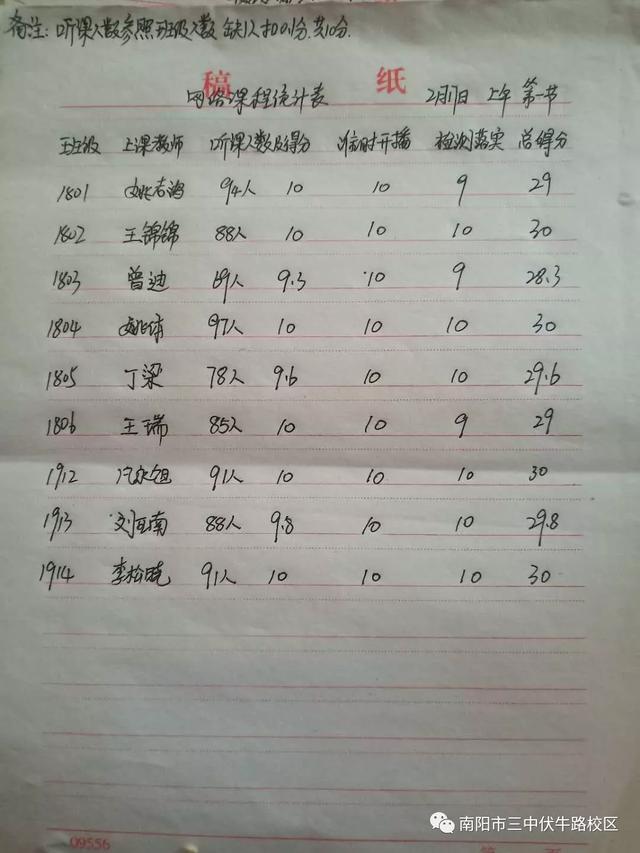 备注：听课人数参照班级人数 缺1人扣0.1分.共10分.
稿 纸
网络课程统计表 2月17日 上午 第一节
班级 上课教师 听课人数及得分 准时开播 检测落实 总得分
1801 94人 10 10 9 29
1802 王锦锦 88人 10 10 10 30
1803 曾迪 69人 9.3 10 9 28.3
1804 97人 10 10 10 30
1805 丁梁 78人 9.6 10 10 29.6
1806 王瑞 85人 10 10 9 29
1912 91人 10 10 10 30
1913 刘亚南 88人 9.8 10 10 29.8
1914 李松晓 91人 10 10 10 30
09556 第 页
南阳市三中伏牛路校区